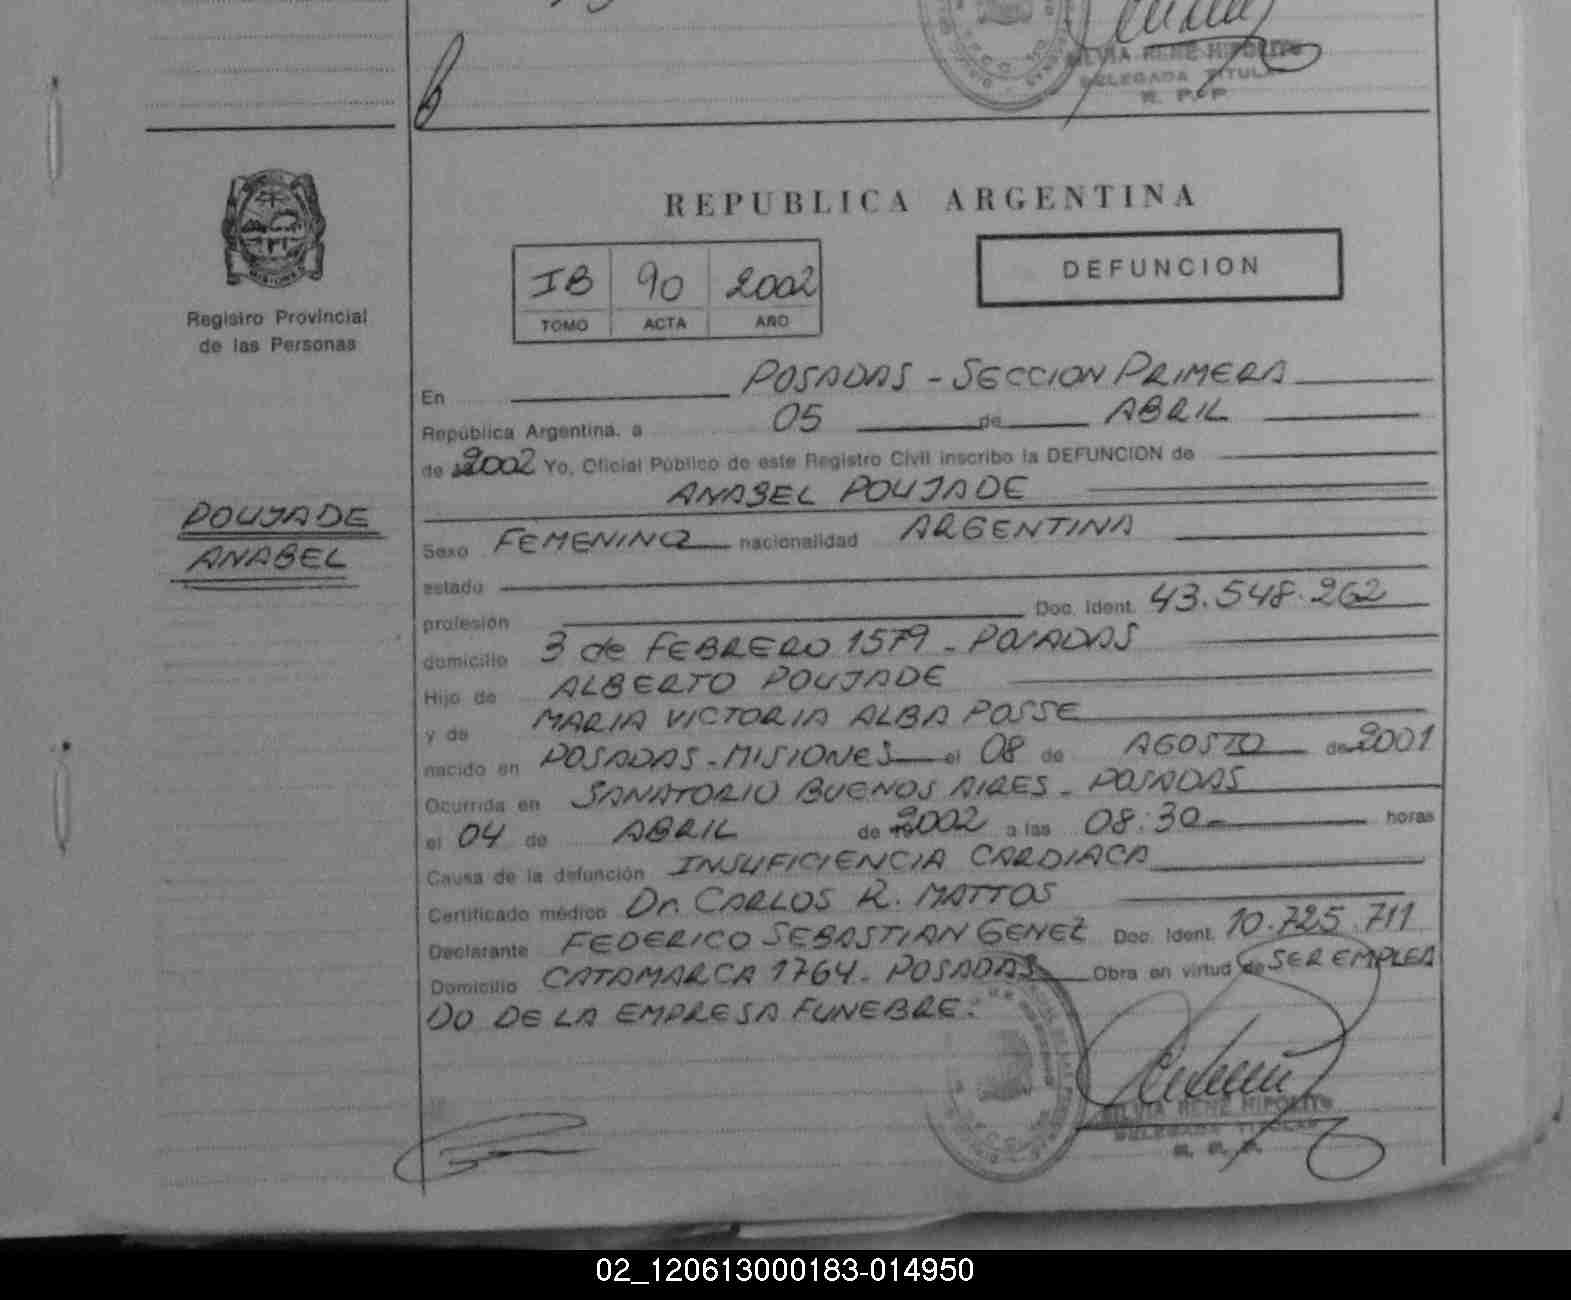 SILVIA RENE HIPOLITO
DELEGADA TITULAR
R. P. P.
REPUBLICA ARGENTINA
IB 90 2002
TOMO ACTA AÑO
DEFUNCION
Registro Provincial
de las Personas
POUJADE
ANABEL
En POSADAS - SECCION PRIMERA
República Argentina, a 05 de ABRIL
de 2002 Yo, Oficial Público de este Registro Civil inscribo la DEFUNCION de
ANABEL POUJADE
Sexo FEMENINO nacionalidad ARGENTINA
estado
profesión Doc. Ident. 43.548.262
domicilio 3 de FEBRERO 1579 - POSADAS
Hijo de ALBERTO POUJADE
y de MARIA VICTORIA ALBA POSSE
nacido en POSADAS - MISIONES el 08 de AGOSTO de 2001
Ocurrida en SANATORIO BUENOS AIRES - POSADAS
el 04 de ABRIL de 2002 a las 08:30 horas
Causa de la defunción INSUFICIENCIA CARDIACA
Certificado médico Dr. CARLOS R. MATTOS
Declarante FEDERICO SEBASTIAN GENEZ Doc. Ident. 10.725.711
Domicilio CATAMARCA 1764 - POSADAS Obra en virtud de SER EMPLEA
DO DE LA EMPRESA FUNEBRE.
SILVIA RENE HIPOLITO
DELEGADA TITULAR
R. P. P.
02_120613000183-014950